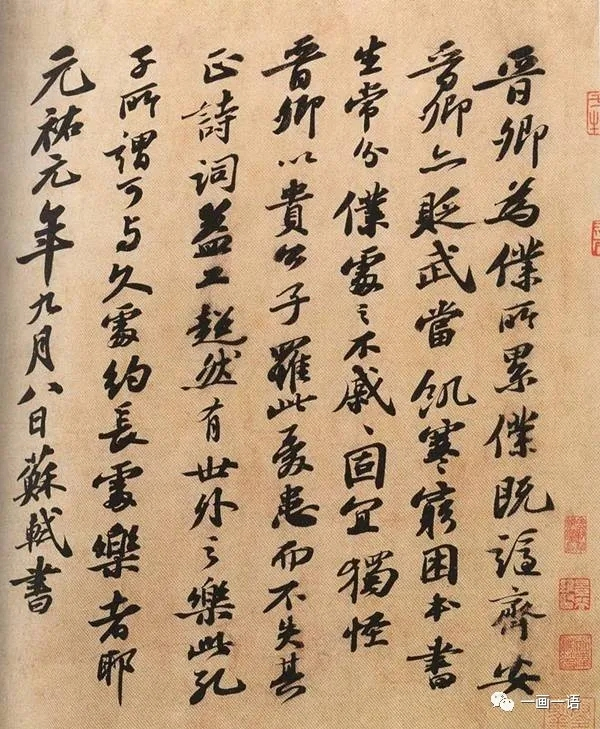 晉卿為僕所累僕既謫齊安
晉卿亦貶武當飢寒窮困本書
生常分僕處之不戚戚固宜獨怪
晉卿以貴公子罹此憂患而不失其
正詩詞益工超然有世外之樂此孔
子所謂可與久處約長處樂者耶
元祐元年九月八日蘇軾書
一画一语